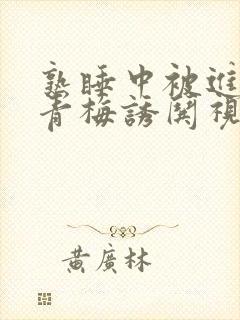 熟睡中被進
青梅誘関視
黃廣林